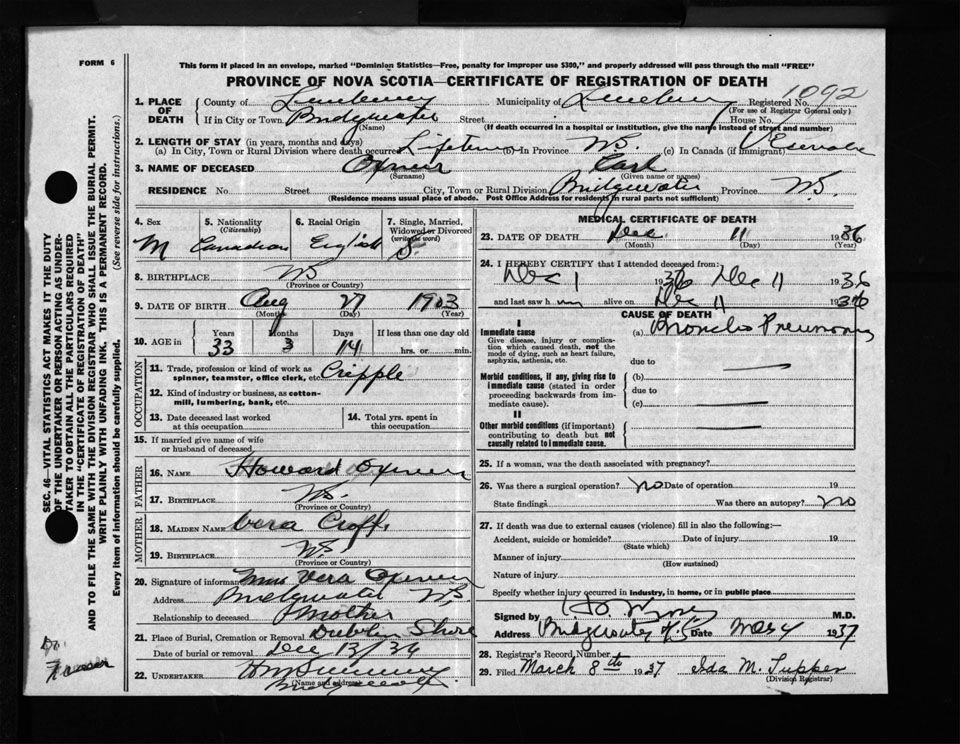 FORM 6
This form if placed in an envelope, marked "Dominion Statistics—Free, penalty for improper use $300," and properly addressed will pass through the mail "FREE"
PROVINCE OF NOVA SCOTIA—CERTIFICATE OF REGISTRATION OF DEATH
1092
1. PLACE OF DEATH County of Lunenburg Municipality of Lunenburg Registered No.
(For use of Registrar General only)
If in City or Town Bridgewater Street House No.
(Name) (If death occurred in a hospital or institution, give the name instead of street and number)
2. LENGTH OF STAY (in years, months and days)
(a) In City, Town or Rural Division where death occurred Lifetime (b) In Province N.S. (c) In Canada (if immigrant)
3. NAME OF DECEASED Oxner
(Surname) (Given name or names)
RESIDENCE No. Street City, Town or Rural Division Bridgewater Province N.S.
(Residence means usual place of abode. Post Office Address for residents in rural parts not sufficient)
4. Sex 5. Nationality 6. Racial Origin 7. Single, Married, Widowed or Divorced
(Citizenship) (write the word)
M Canadian English S.
8. BIRTHPLACE NS
(Province or Country)
9. DATE OF BIRTH Aug 27 1903
(Month) (Day) (Year)
10. AGE in Years Months Days If less than one day old
33 3 14 hrs. or min.
OCCUPATION
11. Trade, profession or kind of work as spinner, teamster, office clerk, etc. Cripple
12. Kind of industry or business, as cotton-mill, lumbering, bank, etc.
13. Date deceased last worked at this occupation
14. Total yrs. spent in this occupation
15. If married give name of wife or husband of deceased
FATHER
16. NAME Howard Oxner
17. BIRTHPLACE N.S.
(Province or Country)
MOTHER
18. MAIDEN NAME Vera
19. BIRTHPLACE N.S.
(Province or Country)
20. Signature of informant Mrs Vera Oxner
Address Bridgewater N.S.
Relationship to deceased Mother
21. Place of Burial, Cremation or Removal Dublin Shore
Date of burial or removal Dec 13/36
22. UNDERTAKER
(Name and address)
MEDICAL CERTIFICATE OF DEATH
23. DATE OF DEATH Dec 11 1936
(Month) (Day) (Year)
24. I HEREBY CERTIFY that I attended deceased from:
Dec 1 1936 Dec 11 1936
and last saw h im alive on Dec 11 1936
CAUSE OF DEATH
I
Immediate cause (a) Broncho Pneumonia
Give disease, injury or complication which caused death, not the mode of dying, such as heart failure, asphyxia, asthenia, etc.
due to
Morbid conditions, if any, giving rise to immediate cause (stated in order proceeding backwards from immediate cause).
(b)
due to
(c)
II
Other morbid conditions (if important) contributing to death but not causally related to immediate cause.
25. If a woman, was the death associated with pregnancy?
26. Was there a surgical operation? no Date of operation 19
State findings Was there an autopsy? no
27. If death was due to external causes (violence) fill in also the following:—
Accident, suicide or homicide? Date of injury 19
(State which)
Manner of injury
(How sustained)
Nature of injury
Specify whether injury occurred in industry, in home, or in public place
Signed by M.D.
Address Bridgewater N.S. Date 1937
28. Registrar's Record Number
29. Filed March 8th 1937 Ida M. Tupper
(Division Registrar)
SEC. 46—VITAL STATISTICS ACT MAKES IT THE DUTY
OF THE UNDERTAKER OR PERSON ACTING AS UNDER-
TAKER TO OBTAIN ALL THE PARTICULARS REQUIRED
IN THE "CERTIFICATE OF REGISTRATION OF DEATH"
AND TO FILE THE SAME WITH THE DIVISION REGISTRAR WHO SHALL ISSUE THE BURIAL PERMIT.
WRITE PLAINLY WITH UNFADING INK. THIS IS A PERMANENT RECORD.
Every item of information should be carefully supplied. (See reverse side for instructions.)